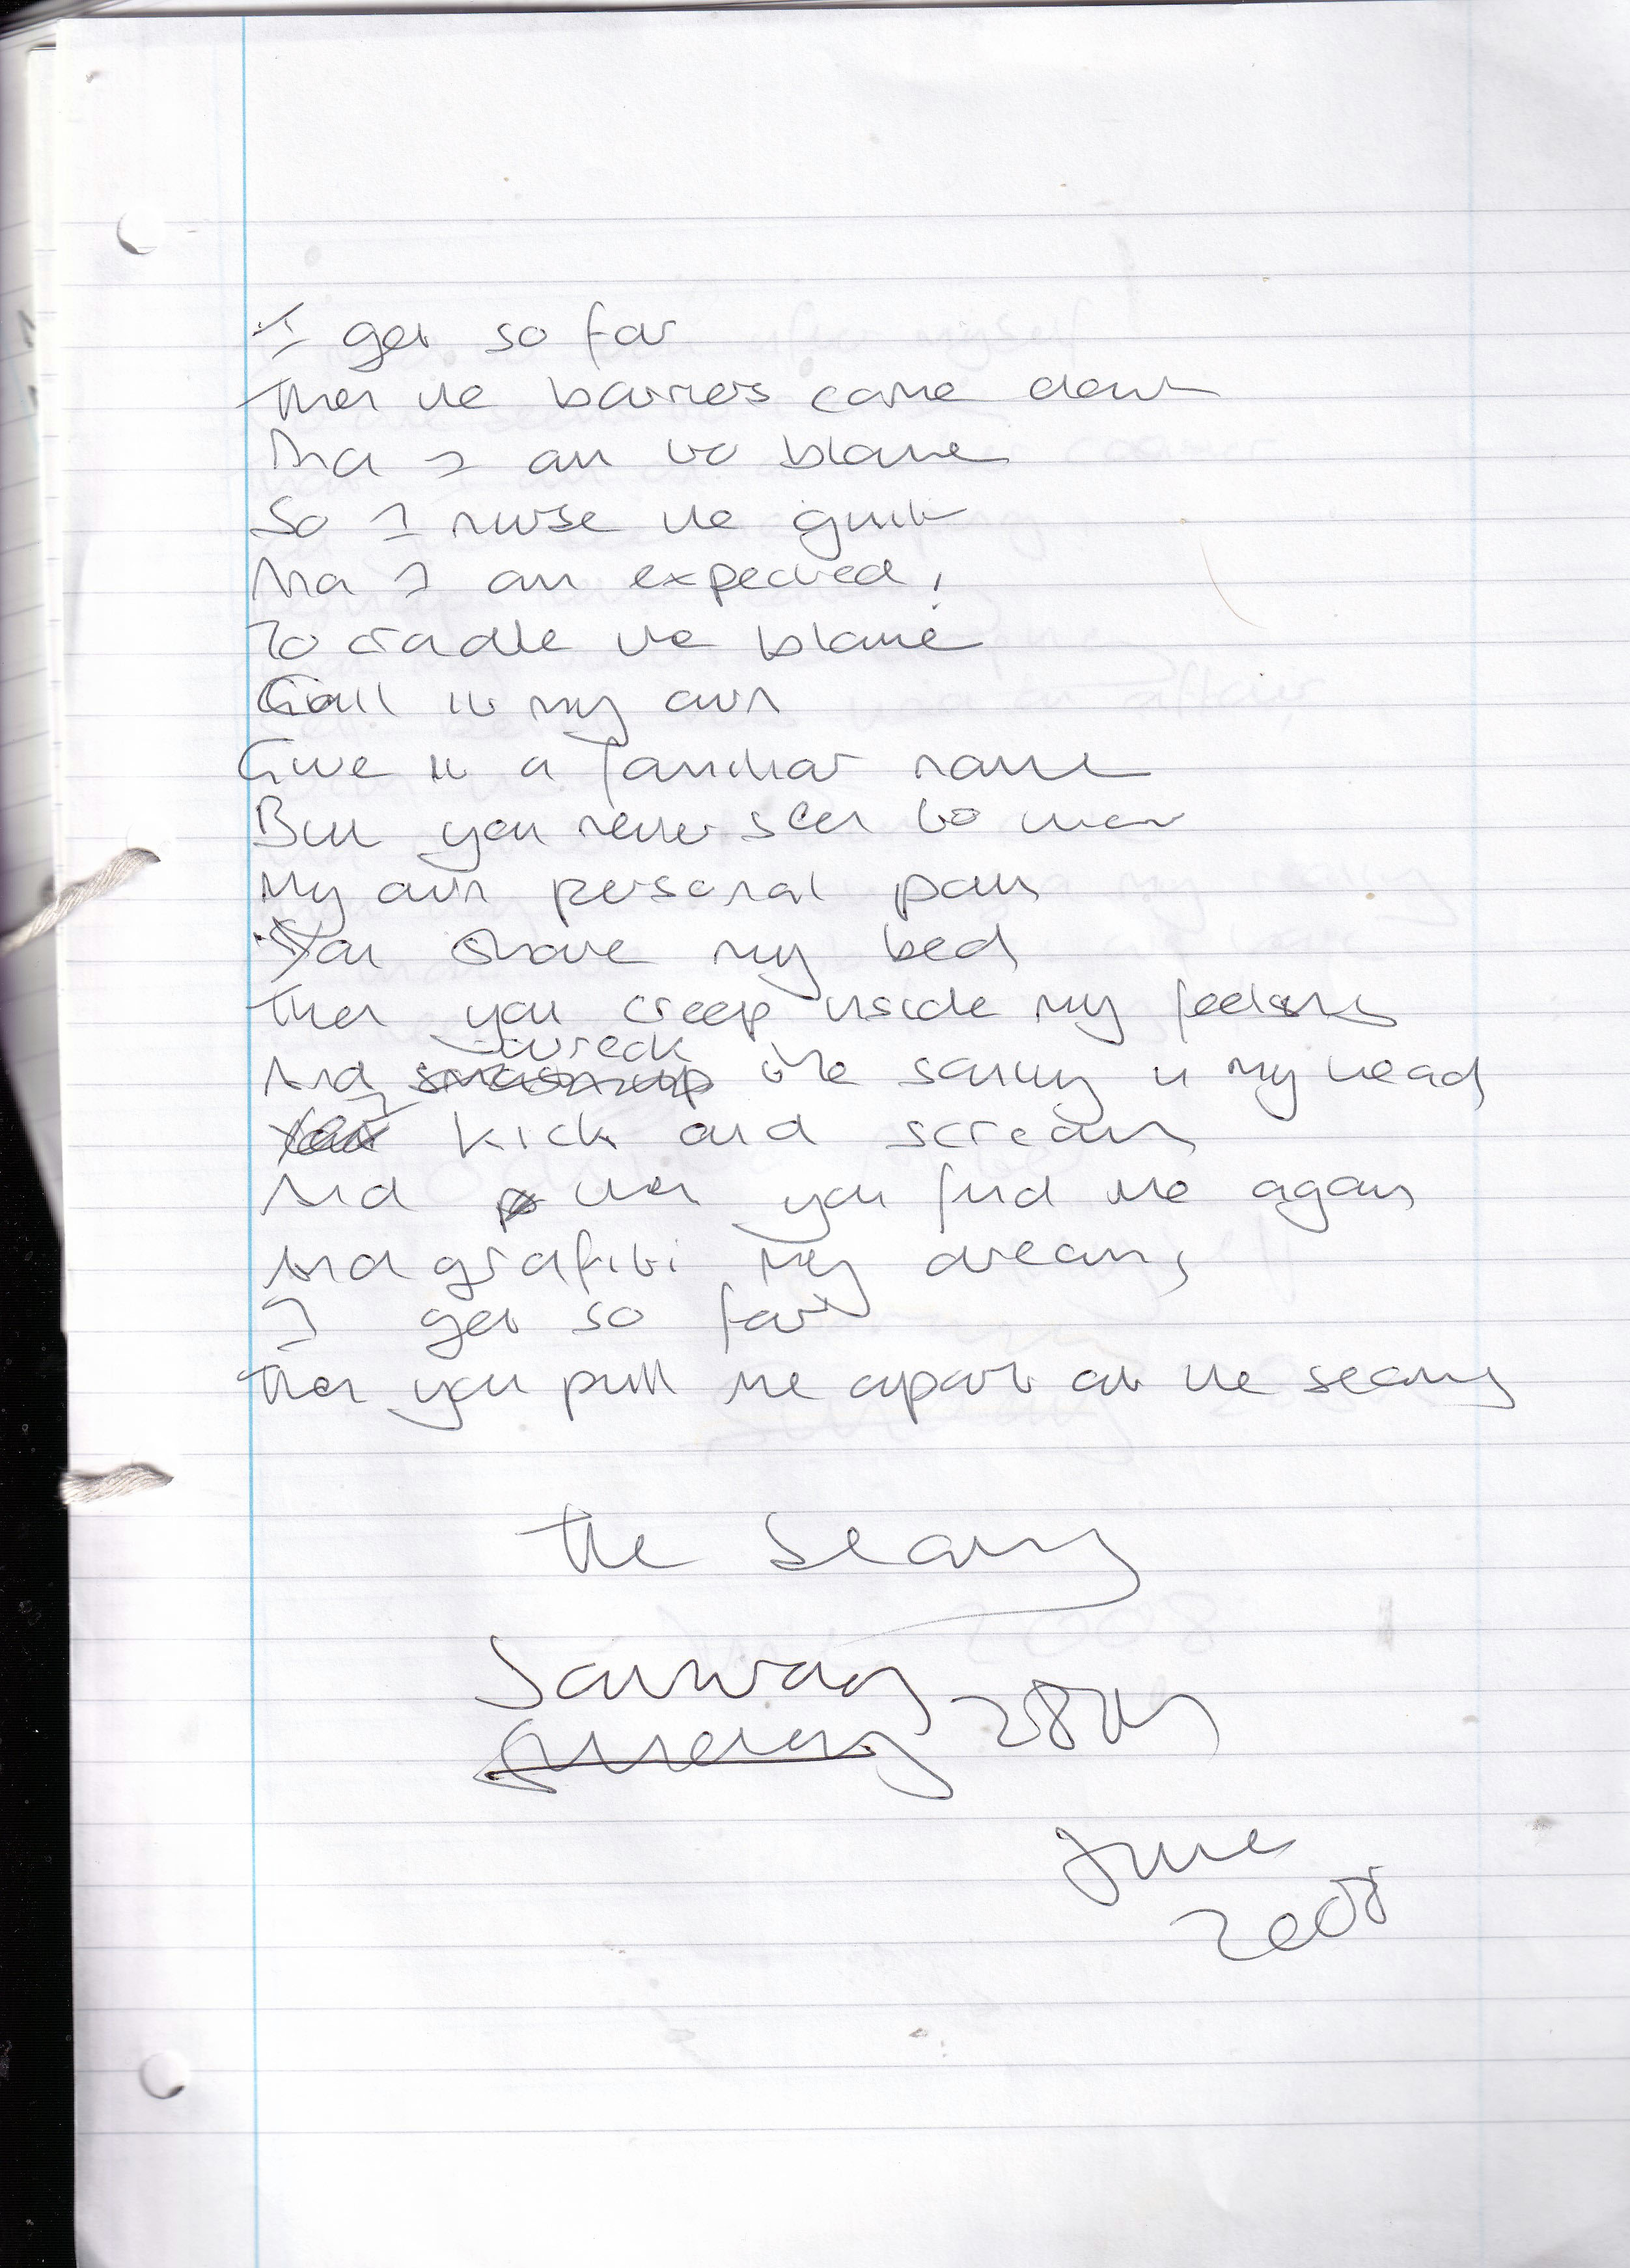 I get so far
Then the barriers come down
And I am to blame
So I nurse the guilt
And I am expected,
To cradle the blame
Call it my own
Give it a familiar name
But you never seem to
My own personal pain
You share my bed
Then you creep inside my feelings
wreck
And smash up the sanity in my head
You I kick and scream
And then you find me again
And grafiti my dreams
I get so far
Then you pull me apart at the seams
The Seams
Saturday
28th
June
2008